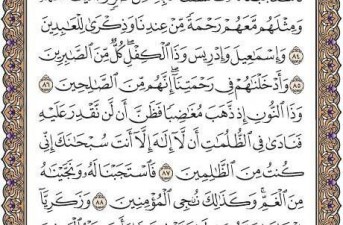 وَمِثْلَهُم مَّعَهُمْ رَحْمَةً مِّنْ عِندِنَا وَذِكْرَىٰ لِلْعَٰبِدِينَ
٨٤ وَإِسْمَٰعِيلَ وَإِدْرِيسَ وَذَا ٱلْكِفْلِ كُلٌّ مِّنَ ٱلصَّٰبِرِينَ
٨٥ وَأَدْخَلْنَٰهُمْ فِى رَحْمَتِنَآ إِنَّهُم مِّنَ ٱلصَّٰلِحِينَ ٨٦
وَذَا ٱلنُّونِ إِذ ذَّهَبَ مُغَٰضِبًا فَظَنَّ أَن لَّن نَّقْدِرَ عَلَيْهِ
فَنَادَىٰ فِى ٱلظُّلُمَٰتِ أَن لَّآ إِلَٰهَ إِلَّآ أَنتَ سُبْحَٰنَكَ إِنِّى
كُنتُ مِنَ ٱلظَّٰلِمِينَ ٨٧ فَٱسْتَجَبْنَا لَهُۥ وَنَجَّيْنَٰهُ
مِنَ ٱلْغَمِّ وَكَذَٰلِكَ نُـۨجِى ٱلْمُؤْمِنِينَ ٨٨ وَزَكَرِيَّآ